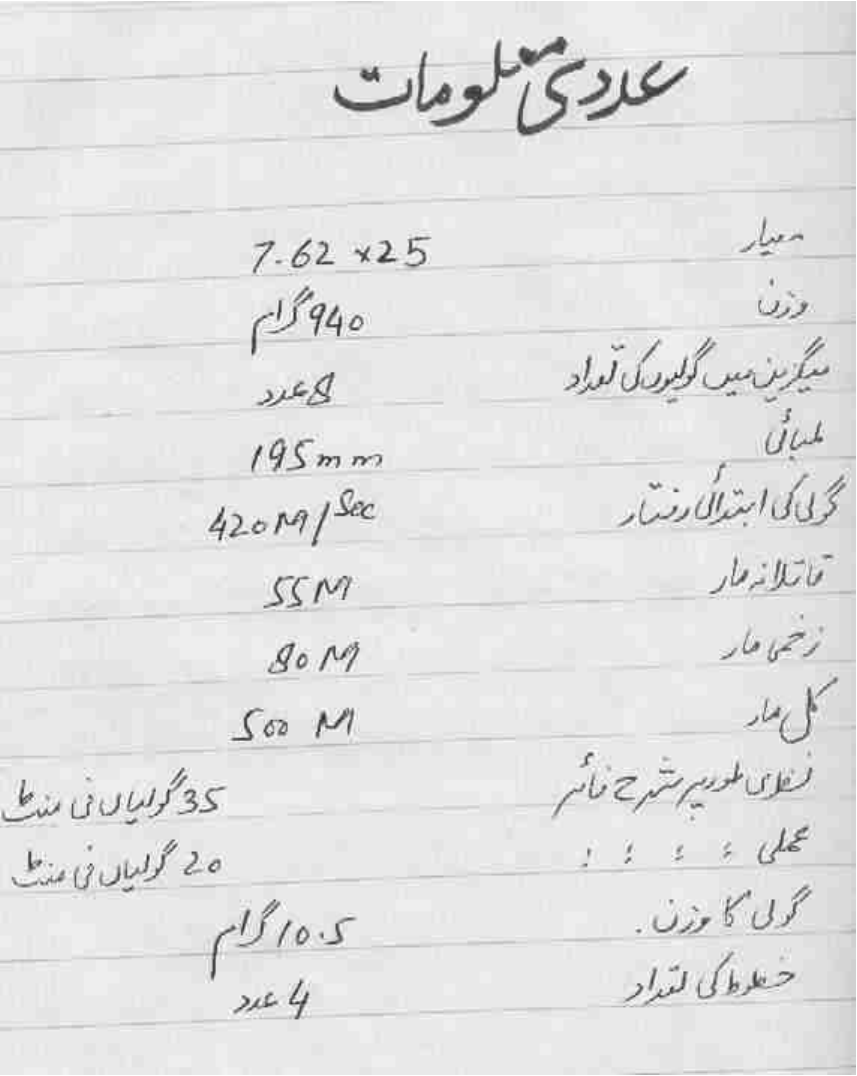 عددی معلومات
معیار 7.62 x25
وزن 940 گرام
میگزین میں گولیوں کی تعداد 8 عدد
لمبائی 195mm
گولی کی ابتدائی رفتار 420M/Sec
قاتلانہ مار 55M
زخمی مار 80M
کل مار 500 M
نظری طور پر شرح فائر 35 گولیاں فی منٹ
عملی ؛ ؛ ؛ ؛ 20 گولیاں فی منٹ
گولی کا وزن. 10.5 گرام
خطوط کی تعداد 4 عدد